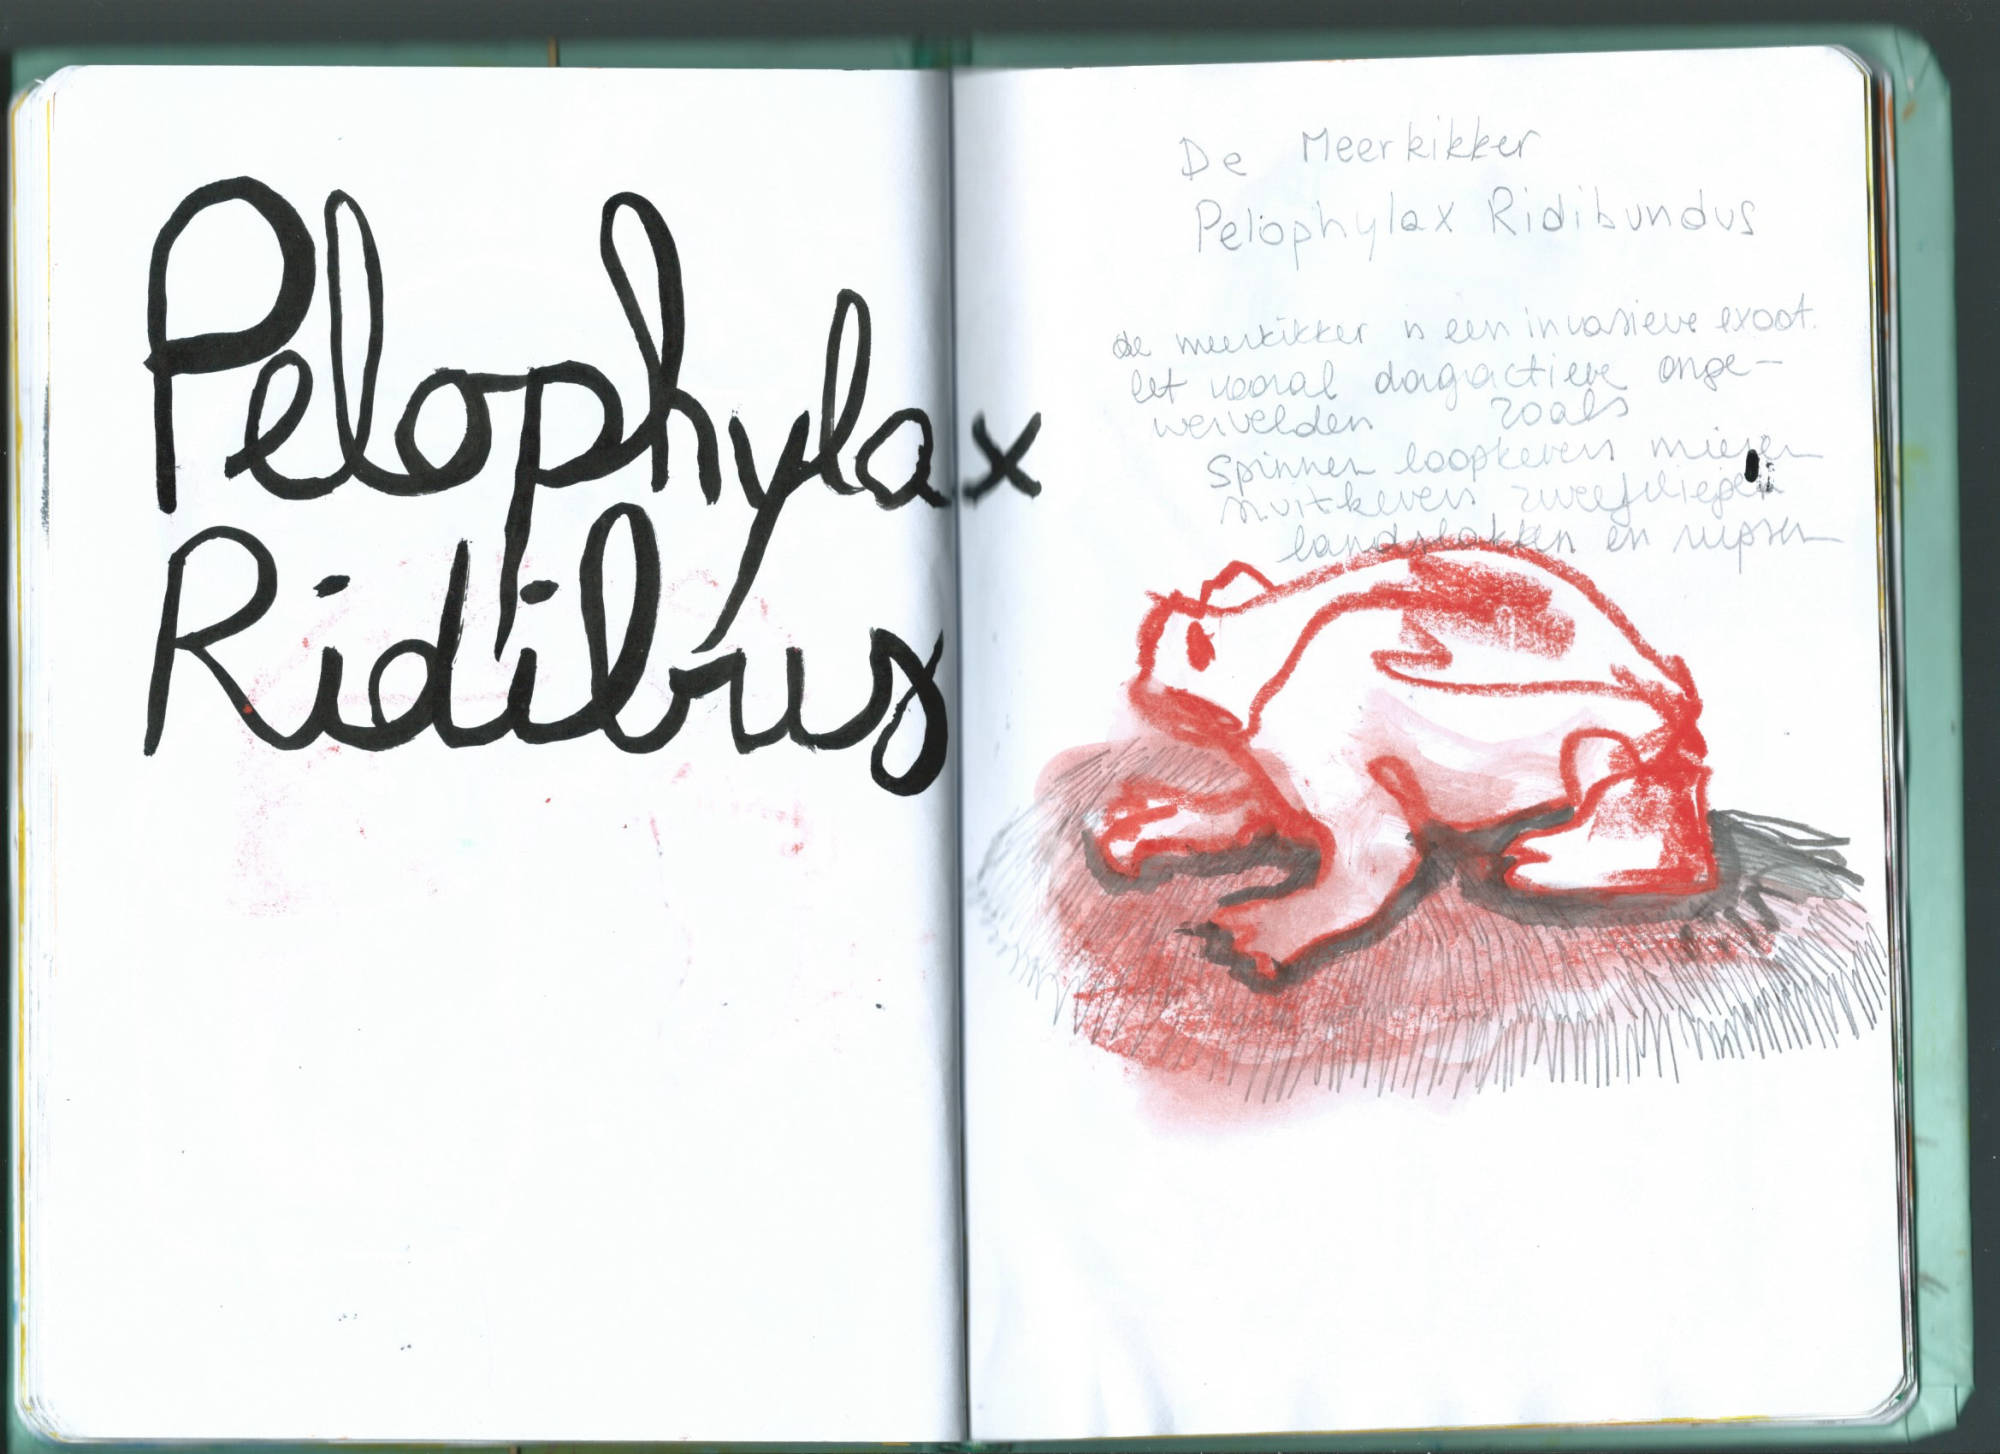 Pelophylax
Ridibus
De Meerkikker
Pelophylax Ridibundus
de meerkikker is een invasieve exoot.
eet vooral dagactieve onge-
wervelden zoals
spinnen loopkevers mieren
snuitkevers zweefvliegen
landslakken en rupsen